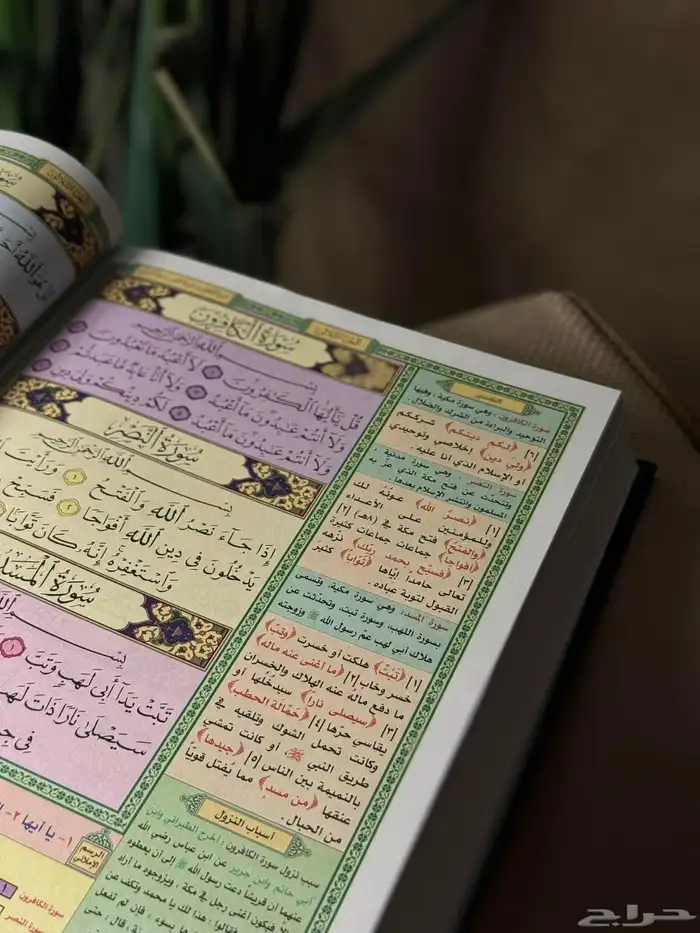 سورة الكافرون
بسم الله الرحمن الرحيم
قُلْ يَا أَيُّهَا الْكَافِرُونَ ١ لَا أَعْبُدُ مَا تَعْبُدُونَ
وَلَا أَنْتُمْ عَابِدُونَ مَا أَعْبُدُ ٣ وَلَا أَنَا عَابِدٌ مَا عَبَدْتُمْ
وَلَا أَنْتُمْ عَابِدُونَ مَا أَعْبُدُ ٥ لَكُمْ دِينُكُمْ وَلِيَ دِينِ
سورة النصر
بسم الله الرحمن الرحيم
إِذَا جَاءَ نَصْرُ اللَّهِ وَالْفَتْحُ ١ وَرَأَيْتَ
يَدْخُلُونَ فِي دِينِ اللَّهِ أَفْوَاجًا ٢ فَسَبِّحْ
وَاسْتَغْفِرْهُ إِنَّهُ كَانَ تَوَّابًا
سورة المسد
تَبَّتْ يَدَا أَبِي لَهَبٍ وَتَبَّ ١
سَيَصْلَى نَارًا ذَاتَ لَهَبٍ
فِي
١- يا أيها ٢-
الرسم الإملائي
سورة الكافرون
سورة النصر
التفسير
سورة الكافرون: وهي سورة مكية، وفيها
التوحيد والبراءة من الشرك والضلال.
[٦] ﴿لكم دينكم﴾ شرككم
﴿ولي دين﴾ إخلاصي وتوحيدي
أو الإسلام الذي أنا عليه
سورة النصر: وهي سورة مدنية،
وتتحدث عن فتح مكة الذي عز به
المسلمون وانتشر الإسلام بعدها.
[١] ﴿نصر الله﴾ عونه لك
وللمؤمنين على الأعداء
﴿والفتح﴾ فتح مكة في (٨هـ) [٢]
﴿أفواجا﴾ جماعات جماعات كثيرة
[٣] ﴿فسبح بحمد ربك﴾ نزهه
تعالى حامدًا إياه ﴿توابا﴾ كثير
القبول لتوبة عباده.
سورة المسد: وهي سورة مكية، وتسمى
بسورة اللهب، وسورة تبت، وتحدثت عن
هلاك أبي لهب عم رسول الله ﷺ وزوجته
[١] ﴿تبت﴾ هلكت أو خسرت ﴿وتب﴾
خسر وخاب [٢] ﴿ما أغنى عنه ماله﴾
ما دفع ماله عنه الهلاك والخسران
[٣] ﴿سيصلى نارا﴾ سيدخلها أو
يقاسي حرها [٤] ﴿حمالة الحطب﴾
وكانت تحمل الشوك وتلقيه في
طريق النبي ﷺ، أو كانت تمشي
بالنميمة بين الناس [٥] ﴿جيدها﴾
عنقها ﴿من مسد﴾ مما يفتل قويًا
من الحبال.
أسباب النزول
سبب نزول سورة الكافرون: أخرج الطبراني وابن
أبي حاتم وابن جرير عن ابن عباس رضي الله
عنهما أن قريشًا دعت رسول الله ﷺ إلى أن يعطوه
مالا فيكون أغنى رجل في مكة، ويزوجوه ما أراد
فقالوا: هذا لك يا محمد وتكف عن
بسوء، فإن لم تفعل
قال: حتى
حراج